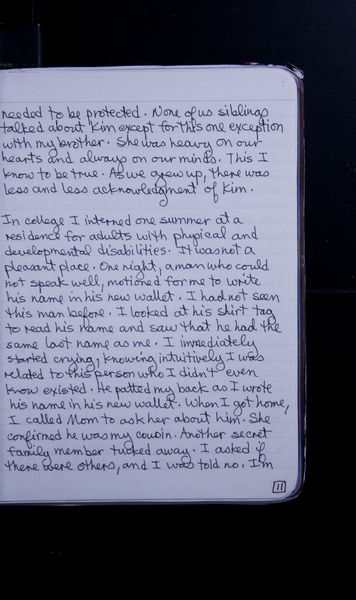 needed to be protected. None of us siblings
talked about Kim except for this one exception
with my brother. She was heavy on our
hearts and always on our minds. This I
know to be true. As we grew up, there was
less and less acknowledgment of Kim.
In college I interned one summer at a
residence for adults with physical and
developmental disabilities. It was not a
pleasant place. One night, a man who could
not speak well, motioned for me to write
his name in his new wallet. I had not seen
this man before. I looked at his shirt tag
to read his name and saw that he had the
same last name as me. I immediately
started crying, knowing intuitively I was
related to this person who I didn't even
know existed. He patted my back as I wrote
his name in his new wallet. When I got home,
I called Mom to ask her about him. She
confirmed he was my cousin. Another secret
family member tucked away. I asked if
there were others, and I was told no. I'm
11